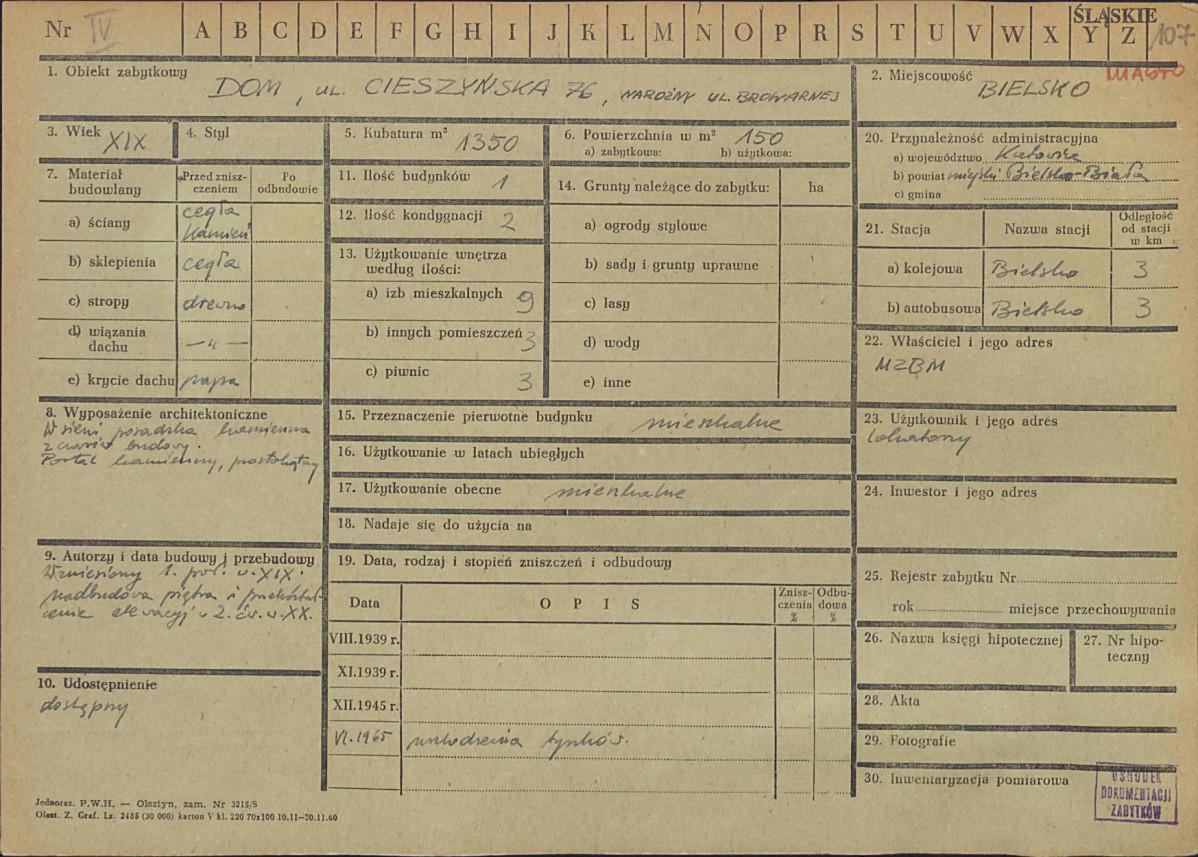 Nr IV A B C D E F G H I J K L M N O P R S T U V W X Y Z ŚLĄSKIE 107
MIASTO
1. Obiekt zabytkowy DOM, UL. CIESZYŃSKA 76, NAROŻNY UL. BROWARNEJ
2. Miejscowość BIELSKO
3. Wiek XIX
4. Styl
5. Kubatura m³ 1350
6. Powierzchnia w m² 150
a) zabytkowa: b) użytkowa:
20. Przynależność administracyjna
a) województwo Katowice
b) powiat miejski Bielsko-Biała
c) gmina
7. Materiał budowlany
Przed zniszczeniem
Po odbudowie
a) ściany cegła kamień
b) sklepienia cegła
c) stropy drewno
d) wiązania dachu —"—
e) krycie dachu papa
11. Ilość budynków 1
12. Ilość kondygnacji 2
13. Użytkowanie wnętrza według ilości:
a) izb mieszkalnych 9
b) innych pomieszczeń 3
c) piwnic 3
14. Grunty należące do zabytku: ha
a) ogrody stylowe
b) sady i grunty uprawne
c) lasy
d) wody
e) inne
21. Stacja Nazwa stacji Odległość od stacji w km
a) kolejowa Bielsko 3
b) autobusowa Bielsko 3
22. Właściciel i jego adres
MZBM
8. Wyposażenie architektoniczne
W sieni posadzka kamienna
z czasów budowy.
Portal kamienny, prostokątny
15. Przeznaczenie pierwotne budynku mieszkalne
16. Użytkowanie w latach ubiegłych
17. Użytkowanie obecne mieszkalne
18. Nadaje się do użycia na
23. Użytkownik i jego adres
lokatorzy
24. Inwestor i jego adres
9. Autorzy i data budowy i przebudowy
Wzniesiony 1. poł. w. XIX.
nadbudowa piętra i przekształ-
cenie elewacyj w 2. ćw. w. XX.
10. Udostępnienie
dostępny
19. Data, rodzaj i stopień zniszczeń i odbudowy
Data OPIS Zniszczenia % Odbudowa %
VIII.1939 r.
XI.1939 r.
XII.1945 r.
VI.1965 uszkodzenia tynków.
25. Rejestr zabytku Nr
rok miejsce przechowywania
26. Nazwa księgi hipotecznej
27. Nr hipoteczny
28. Akta
29. Fotografie
30. Inwentaryzacja pomiarowa
OŚRODEK
DOKUMENTACJI
ZABYTKÓW
Jednoraz. P.W.H. — Olsztyn, zam. Nr 3215/S
Olszt. Z. Graf. Lz. 2485 (30 000) karton V kl. 220 70x100 10.11—30.11.60